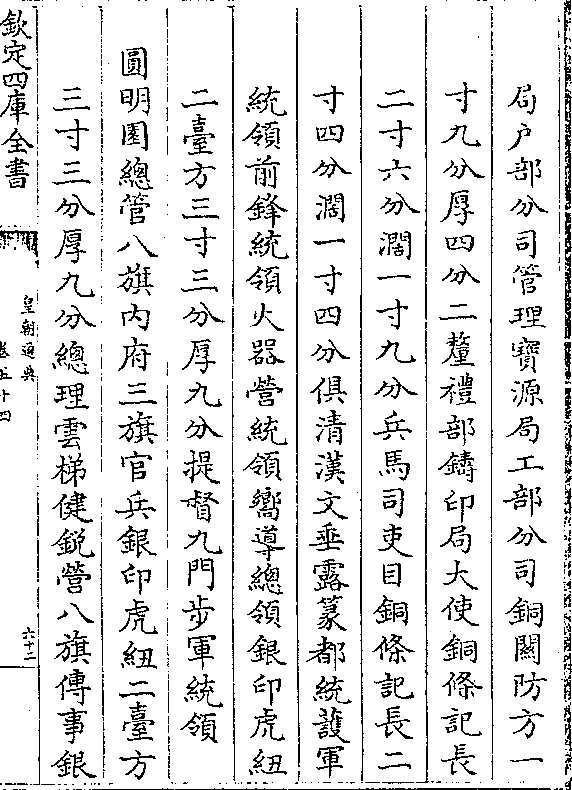 局戶部分司管理寶源局工部分司銅關防方一
寸九分厚四分二釐禮部鑄印局大使銅條記長
二寸六分濶一寸九分兵馬司吏目銅條記長二
寸四分濶一寸四分俱清漢文垂露篆都統護軍
統領前鋒統領火器營統領嚮導總領銀印虎紐
二臺方三寸三分厚九分提督九門步軍統領
圓明園總管八旗內府三旗官兵銀印虎紐二臺方
三寸三分厚九分總理雲梯健銳營八旗傳事銀
欽定四庫全書
皇朝通典
卷五十四
六十二